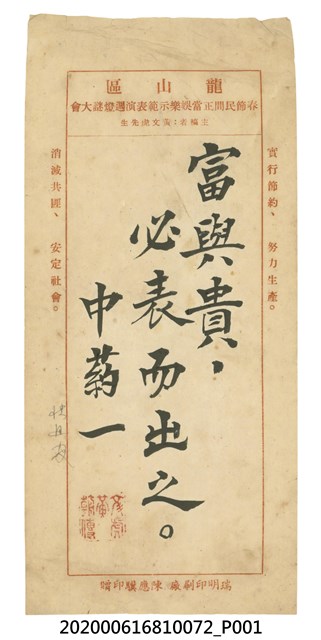 龍山區
春節民間正當娛樂示範表演迴燈謎大會
主稿者:黃文虎先生
實行節約、 努力生產。
富與貴,
必表而出之。
中药一
消滅共匪、 安定社會。
瑞明印刷廠 陳應騏印贈
202000616810072_P001